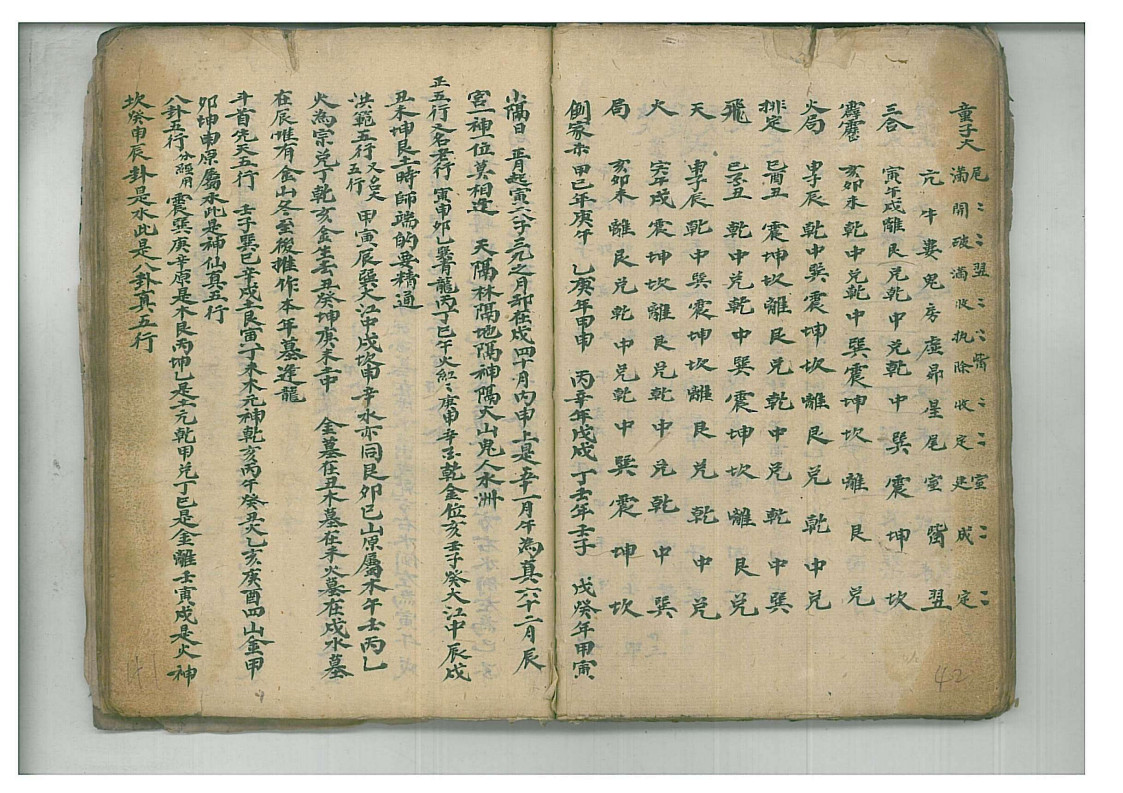 童子大
尾 翌 觜 室
滿 開 破 滿 收 执 除 收 定 建 成 定
亢 牛 婁 鬼 房 虛 昴 星 尾 室 觜 翌
三合 寅午戌 離 艮 兑 乾 中 兑 乾 中 巽 震 坤 坎
霹靂 亥卯未 乾 中 兑 乾 中 巽 震 坤 坎 離 艮 兑
火局 申子辰 乾 中 巽 震 坤 坎 離 艮 兑 乾 中 兑
排定 巳酉丑 震 坤 坎 離 艮 兑 乾 中 兑 乾 中 巽
飛 巳酉丑 乾 中 兑 乾 中 巽 震 坤 坎 離 艮 兑
天 申子辰 乾 中 巽 震 坤 坎 離 艮 兑 乾 中 兑
火 寅午戌 震 坤 坎 離 艮 兑 乾 中 兑 乾 中 巽
局 亥卯未 離 艮 兑 乾 中 兑 乾 中 巽 震 坤 坎
倒家杀 甲己年庚午 乙庚年甲申 丙辛年戊戌 丁壬年壬子 戊癸年甲寅
42
小隔日 正月起寅六子三元之月却在戍四十月丙申上是辛一月午為真六十二月辰
宫一神一位莫相逢 天隔林隔地隔神隔火山鬼人水州
正五行又名老行 寅申卯乙巽青龍丙丁巳午火紅〻庚申辛酉乾金位亥壬子癸大江中辰戌
丑未坤艮土時師端的要精通
洪範五行又名大五行 甲寅辰巽大江中戌坎申辛水亦同艮卯巳山原屬木午壬丙乙
火為宗兑丁乾亥金生云丑癸坤庚未土中 金墓在丑木墓在未火墓在戍水墓
在辰堆有金山冬至後推作本年墓逢龍
斗首先天五行 壬子巽巳辛戍土艮寅丁未木元神乾亥丙午癸丑火乙亥庚酉四山金甲
卯坤申原屬水此是神仙真五行
八卦五行分經用 震巽庚辛原是木艮丙坤乙是土元乾甲兑丁巳是金離壬寅戍是火神
坎癸申辰卦是水此是八卦真五行